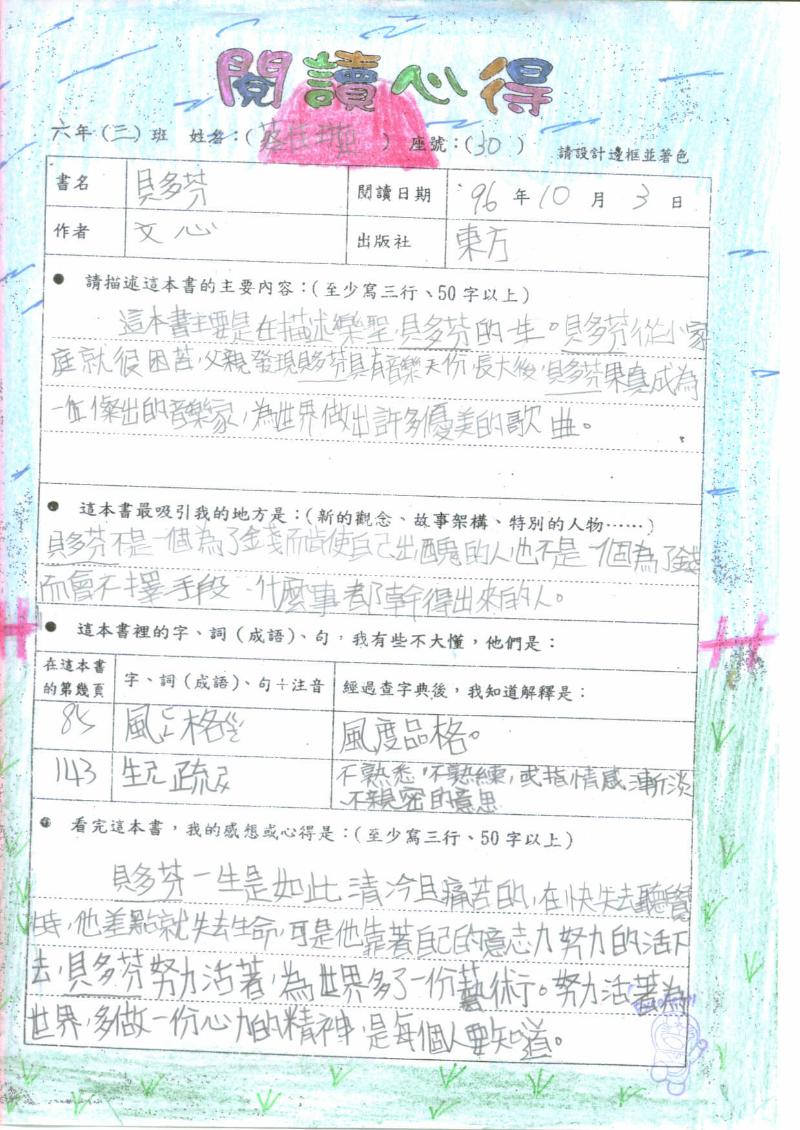 閱讀心得
六年(三)班 姓名:( ) 座號:(30) 請設計邊框並著色
書名 貝多芬 閱讀日期 96年10月3日
作者 文心 出版社 東方
● 請描述這本書的主要內容:(至少寫三行、50字以上)
這本書主要是在描述樂聖,貝多芬的一生。貝多芬從小家
庭就很困苦,父親發現貝多芬具有音樂天份,長大後,貝多芬果真成為
一位傑出的音樂家,為世界做出許多優美的歌曲。
● 這本書最吸引我的地方是:(新的觀念、故事架構、特別的人物……)
貝多芬不是一個為了金錢而肯使自己出醜的人也不是一個為了錢
而會不擇手段、什麼事都幹得出來的人。
● 這本書裡的字、詞(成語)、句,我有些不大懂,他們是:
在這本書的第幾頁 字、詞(成語)、句+注音 經過查字典後,我知道解釋是:
85 風格 風度品格。
143 生疏 不熟悉,不熟練,或指情感漸淡
不親密的意思
● 看完這本書,我的感想或心得是:(至少寫三行、50字以上)
貝多芬一生是如此清冷且痛苦的,在快失去聽覺
時,他差點就失去生命,可是他靠著自己的意志力努力的活下
去,貝多芬努力活著,為世界多了一份藝術。努力活著為
世界,多做一份心力的精神,是每個人要知道。